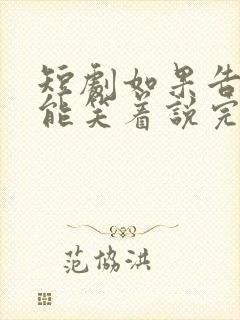 短劇如果告
能笑着說完
范協洪